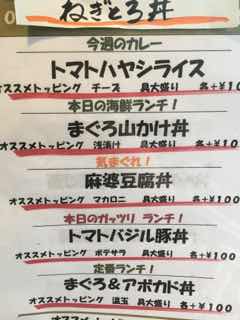 ねぎとろ丼
今週のカレー
トマトハヤシライス
オススメトッピング チーズ 具大盛り 各+¥100
本日の海鮮ランチ!
まぐろ山かけ丼
オススメトッピング 浅漬け 具大盛り 各+¥100
気まぐれ!
麻婆豆腐丼
オススメトッピング マカロニ 具大盛り 各+¥100
本日のガッツリ ランチ!
トマトバジル豚丼
オススメトッピング ポテサラ 具大盛り 各+¥100
定番ランチ!
まぐろ&アボカド丼
オススメトッピング 温玉 具大盛り 各+¥100